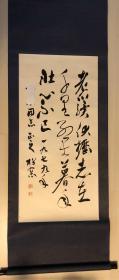 老驥伏櫪志在
千里烈士暮年
壮心不已一九七九年
同志正之